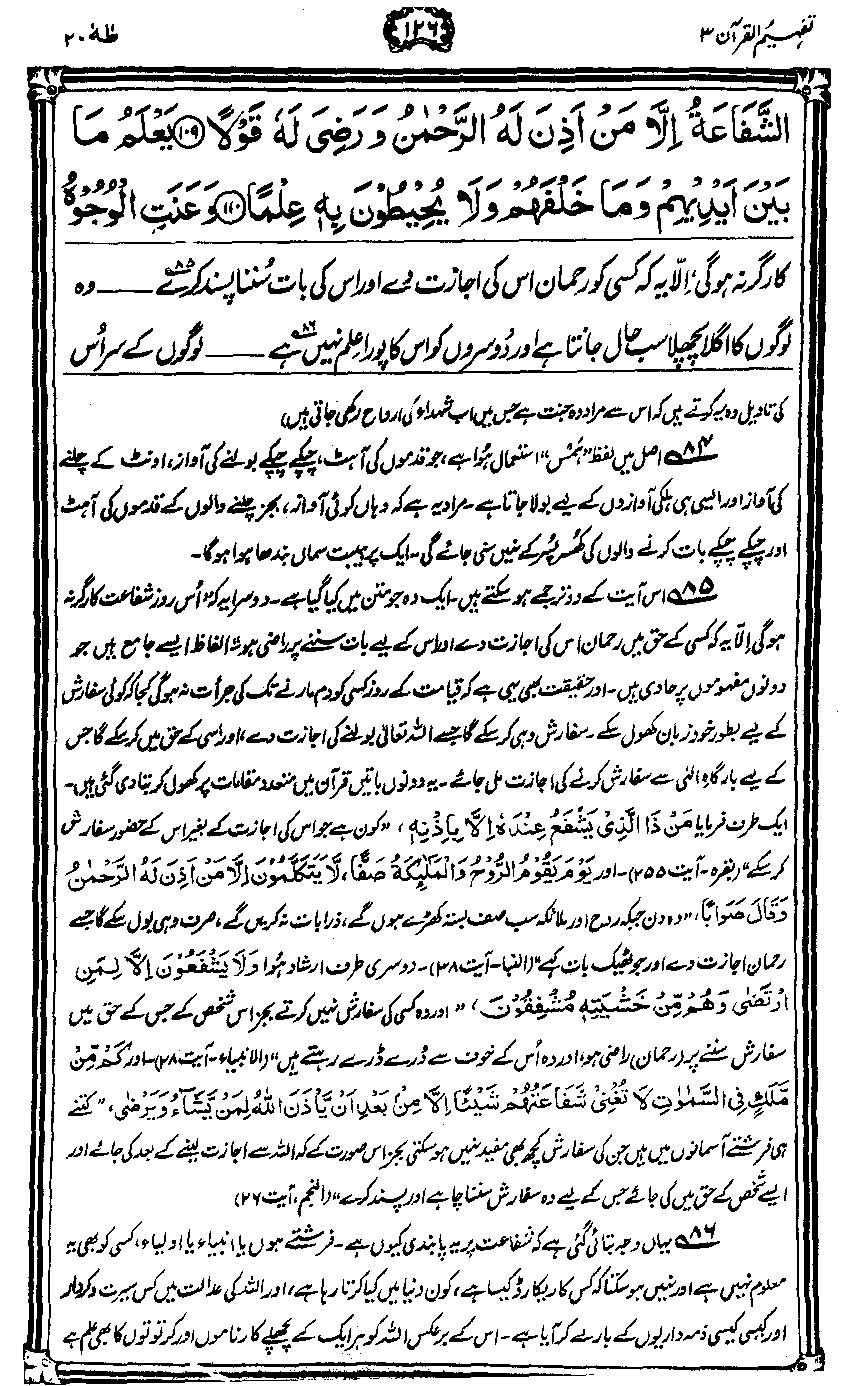 تفہیم القرآن ۳
۱۲۶
طٰہٰ ۲۰
الشَّفَاعَةُ اِلَّا مَنْ اَذِنَ لَهُ الرَّحْمٰنُ وَرَضِیَ لَهٗ قَوْلًا ۱۰۹ یَعْلَمُ مَا
بَیْنَ اَیْدِیْهِمْ وَمَا خَلْفَهُمْ وَلَا یُحِیْطُوْنَ بِهٖ عِلْمًا ۱۱۰ وَعَنَتِ الْوُجُوْهُ
کارگر نہ ہوگی، اِلّا یہ کہ کسی کو رحمان اس کی اجازت دے اور اس کی بات سُننا پسند کرے ۸۵ ــــ وہ
لوگوں کا اگلا پچھلا سب حال جانتا ہے اور دُوسروں کو اس کا پورا عِلم نہیں ہے ۸۶ ــــ لوگوں کے سر اُس
کی تاویل وہ یہ کرتے ہیں کہ اس سے مراد وہ جنت ہے جس میں اب شہداء کی ارواح رکھی جاتی ہیں)
۸۴ اصل میں لفظ ”ہَمْس“ استعمال ہُوا ہے، جو قدموں کی آہٹ، چپکے چپکے بولنے کی آواز، اونٹ کے چلنے
کی آواز اور ایسی ہی ہلکی آوازوں کے لیے بولا جاتا ہے۔ مراد یہ ہے کہ وہاں کوئی آواز، بجز چلنے والوں کے قدموں کی آہٹ
اور چپکے چپکے بات کرنے والوں کی کُھسر پُسر کے نہیں سنی جائے گی۔ ایک پر ہیبت سماں بندھا ہوا ہوگا۔
۸۵ اس آیت کے دو ترجمے ہو سکتے ہیں۔ ایک وہ جو متن میں کیا گیا ہے۔ دوسرا یہ کہ ”اُس روز شفاعت کارگر نہ
ہوگی اِلّا یہ کہ کسی کے حق میں رحمان اس کی اجازت دے اور اس کے لیے بات سننے پر راضی ہو“۔ الفاظ ایسے جامع ہیں جو
دونوں مفہوموں پر حاوی ہیں۔ اور حقیقت بھی یہی ہے کہ قیامت کے روز کسی کو دم مارنے تک کی جرأت نہ ہوگی کجا کہ کوئی سفارش
کے لیے بطور خود زبان کھول سکے۔ سفارش وہی کر سکے گا جسے اللہ تعالیٰ بولنے کی اجازت دے، اور اسی کے حق میں کر سکے گا جس
کے لیے بارگاہِ الٰہی سے سفارش کرنے کی اجازت مل جائے۔ یہ دونوں باتیں قرآن میں متعدد مقامات پر کھول کر بتا دی گئی ہیں۔
ایک طرف فرمایا مَنْ ذَا الَّذِیْ یَشْفَعُ عِنْدَهٗ اِلَّا بِاِذْنِهٖ، ”کون ہے جو اس کی اجازت کے بغیر اس کے حضور سفارش
کر سکے“ (بقرہ۔ آیت ۲۵۵)۔ اور یَوْمَ یَقُوْمُ الرُّوْحُ وَالْمَلٰٓئِكَةُ صَفًّا، لَّا یَتَكَلَّمُوْنَ اِلَّا مَنْ اَذِنَ لَهُ الرَّحْمٰنُ
وَقَالَ صَوَابًا، ”وہ دن جبکہ روح اور ملائکہ سب صف بستہ کھڑے ہوں گے، ذرا بات نہ کریں گے، صرف وہی بول سکے گا جسے
رحمان اجازت دے اور جو ٹھیک بات کہے“ (النبا۔ آیت ۳۸)۔ دوسری طرف ارشاد ہُوا وَلَا یَشْفَعُوْنَ اِلَّا لِمَنِ
ارْتَضٰی وَهُمْ مِّنْ خَشْیَتِهٖ مُشْفِقُوْنَ، ”اور وہ کسی کی سفارش نہیں کرتے بجز اس شخص کے جس کے حق میں
سفارش سننے پر (رحمان) راضی ہو، اور وہ اُس کے خوف سے ڈرے ڈرے رہتے ہیں“ (الانبیاء۔ آیت ۲۸)۔ اور كَمْ مِّنْ
مَّلَكٍ فِی السَّمٰوٰتِ لَا تُغْنِیْ شَفَاعَتُهُمْ شَیْئًا اِلَّا مِنْ بَعْدِ اَنْ یَّاْذَنَ اللّٰهُ لِمَنْ یَّشَآءُ وَیَرْضٰی، ”کتنے
ہی فرشتے آسمانوں میں ہیں جن کی سفارش کچھ بھی مفید نہیں ہو سکتی بجز اس صورت کے کہ اللہ سے اجازت لینے کے بعد کی جائے اور
ایسے شخص کے حق میں کی جائے جس کے لیے وہ سفارش سننا چاہے اور پسند کرے“ (النجم، آیت ۲۶)
۸۶ یہاں وجہ بتائی گئی ہے کہ شفاعت پر یہ پابندی کیوں ہے۔ فرشتے ہوں یا انبیاء یا اولیاء، کسی کو بھی یہ
معلوم نہیں ہے اور نہیں ہو سکتا کہ کس کا ریکارڈ کیسا ہے، کون دنیا میں کیا کرتا رہا ہے، اور اللہ کی عدالت میں کس سیرت و کردار
اور کیسی کیسی ذمہ داریوں کے بار لے کر آیا ہے۔ اس کے برعکس اللہ کو ہر ایک کے پچھلے کارناموں اور کرتوتوں کا بھی علم ہے